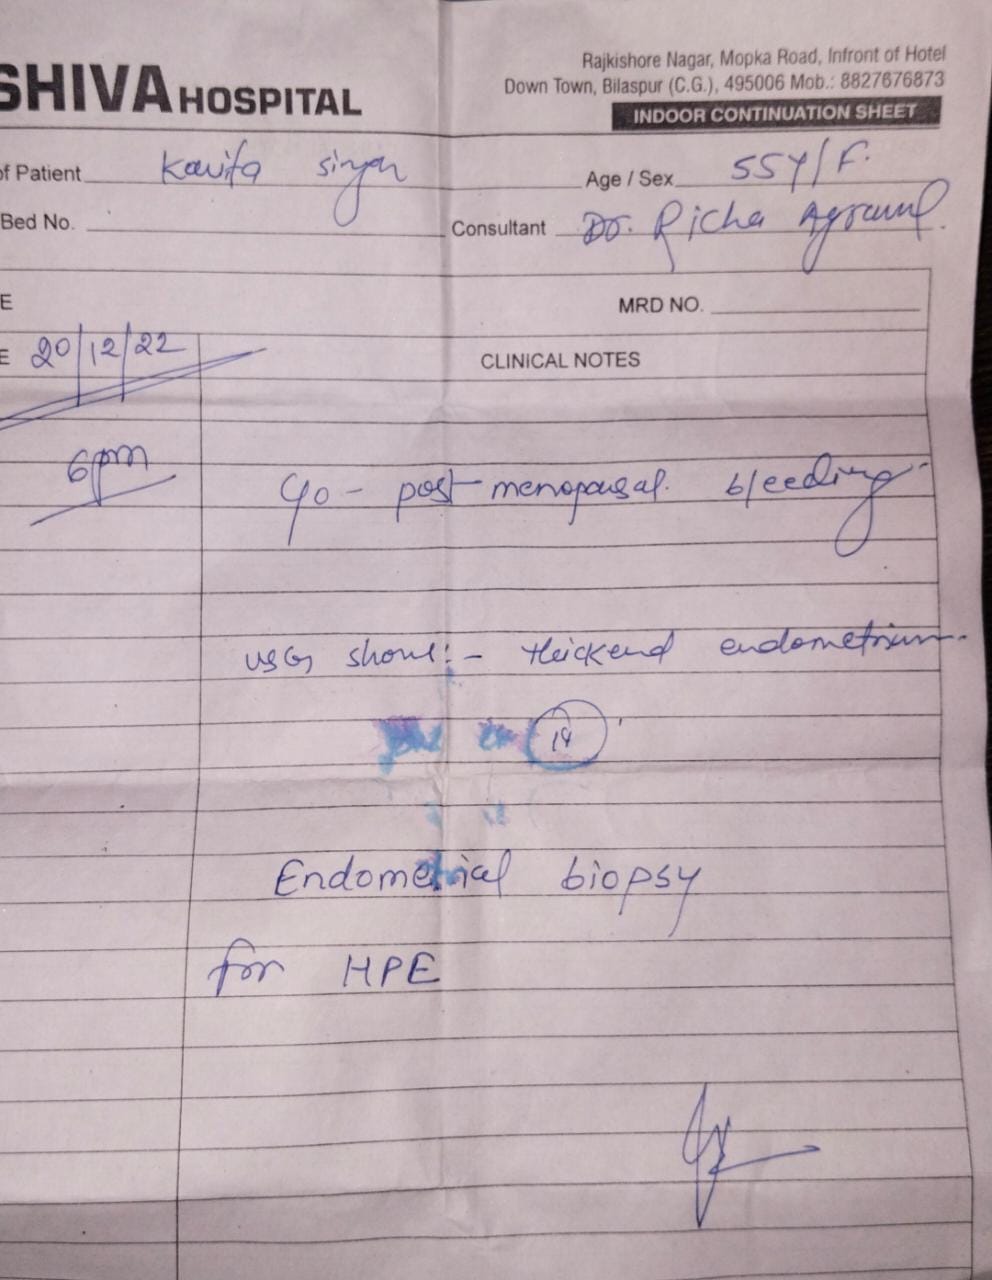 SHIVA HOSPITAL
Rajkishore Nagar, Mopka Road, Infront of Hotel
Down Town, Bilaspur (C.G.), 495006 Mob.: 8827676873
INDOOR CONTINUATION SHEET
of Patient Kavita singh Age / Sex 55Y/F.
Bed No. Consultant Dr. Richa Agrawal.
E MRD NO.
E 20/12/22 CLINICAL NOTES
6pm
c/o - post menopausal. bleeding
USG shows:- thickend endometrium.
14
Endometrical biopsy
for HPE